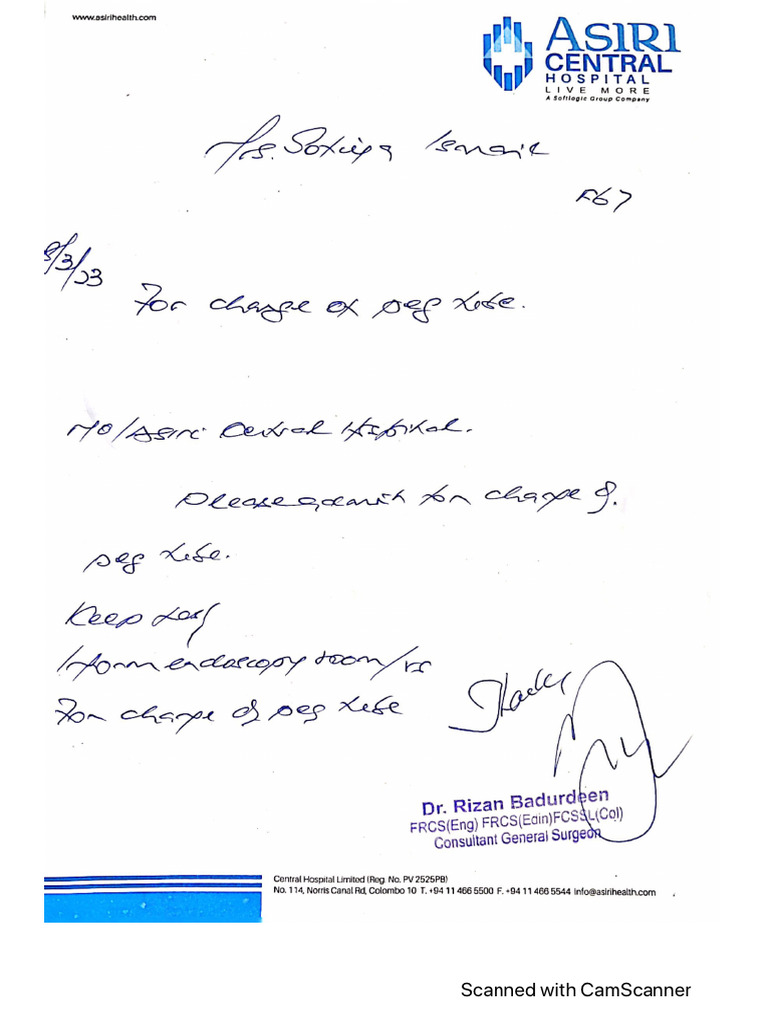 www.asirihealth.com
ASIRI
CENTRAL
HOSPITAL
LIVE MORE
A Softlogic Group Company
Mrs. Ismail
F67
3/23
For change of peg tube.
MO/Asiri Central Hospital.
Please admit for change of
peg tube.
Keep
Inform endoscopy room/
For change of peg tube
Thanks
Dr. Rizan Badurdeen
FRCS(Eng) FRCS(Edin)FCSSL(Col)
Consultant General Surgeon
Central Hospital Limited (Reg. No. PV 2525PB)
No. 114, Norris Canal Rd, Colombo 10 T. +94 11 466 5500 F. +94 11 466 5544 info@asirihealth.com
Scanned with CamScanner